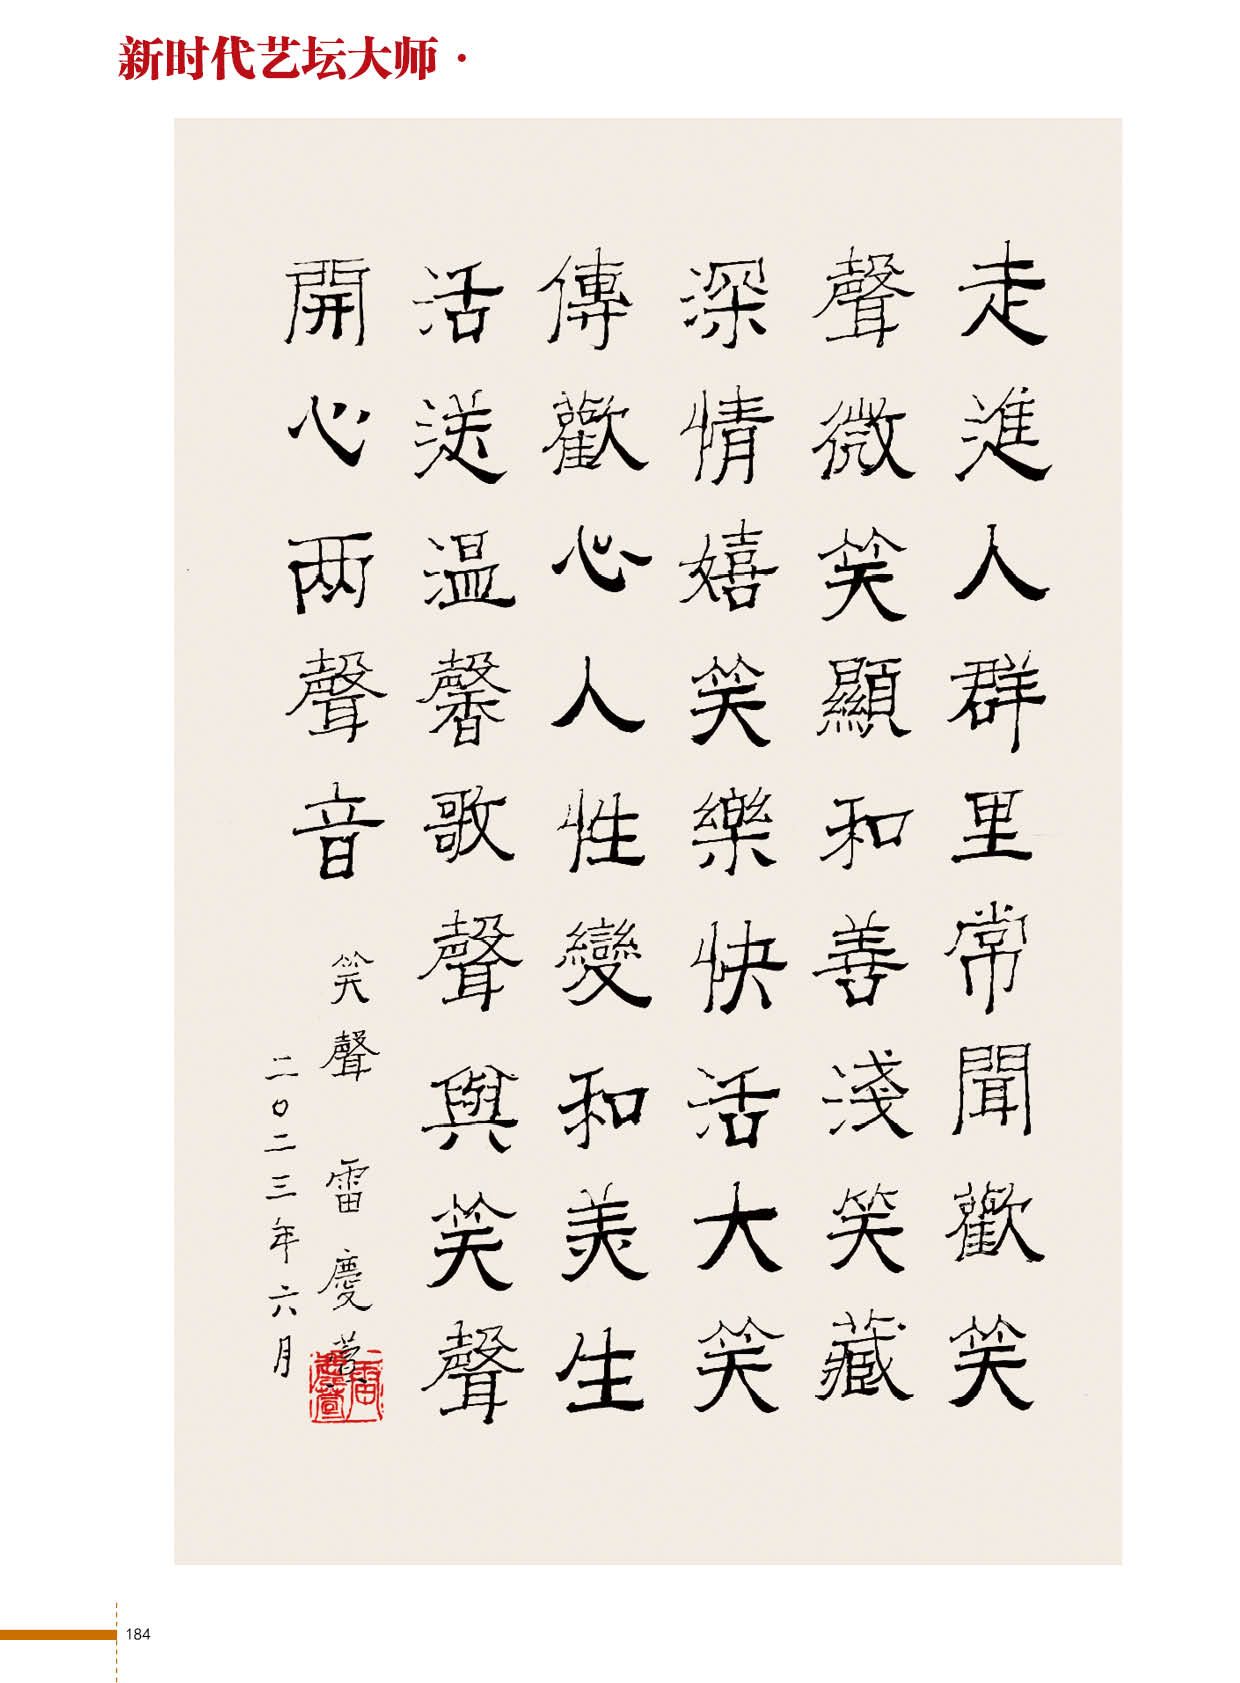 新时代艺坛大师·
走進人群里常聞歡笑
聲微笑顯和善淺笑藏
深情嬉笑樂快活大笑
傳歡心人性變和美生
活送温馨歌聲與笑聲
開心两聲音
笑聲 雷慶
二〇二三年六月
184